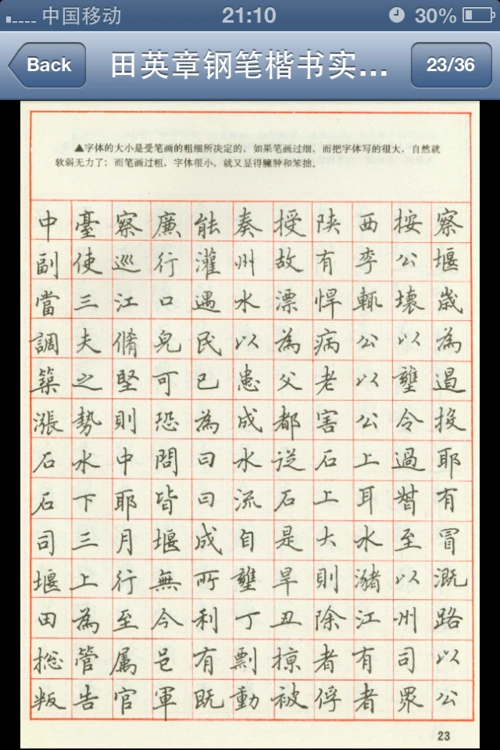 中国移动 21:10 30%
Back 田英章钢笔楷书实... 23/36
▲字体的大小是受笔画的粗细所决定的，如果笔画过细，而把字体写的很大，自然就
软弱无力了；而笔画过粗，字体很小，就又显得臃肿和笨拙。
中臺察廉能奏授陕西按察
副使巡行灌州故有李公堰
當三江口遇水漂悍輒壞歲
調夫脩皃民以為病公以為
築之堅可已患父老以壅遏
漲勢則恐為成都害公令投
石水中問曰水從石上過耶
石下耶皆曰流石上耳有
司三月堰成自是大水至冒
堰上行無所壅旱則瀦以溉
田為至今利丁丑除江州路
捴管属邑有剽掠者有司以
叛告官軍既動被俘者界公
23